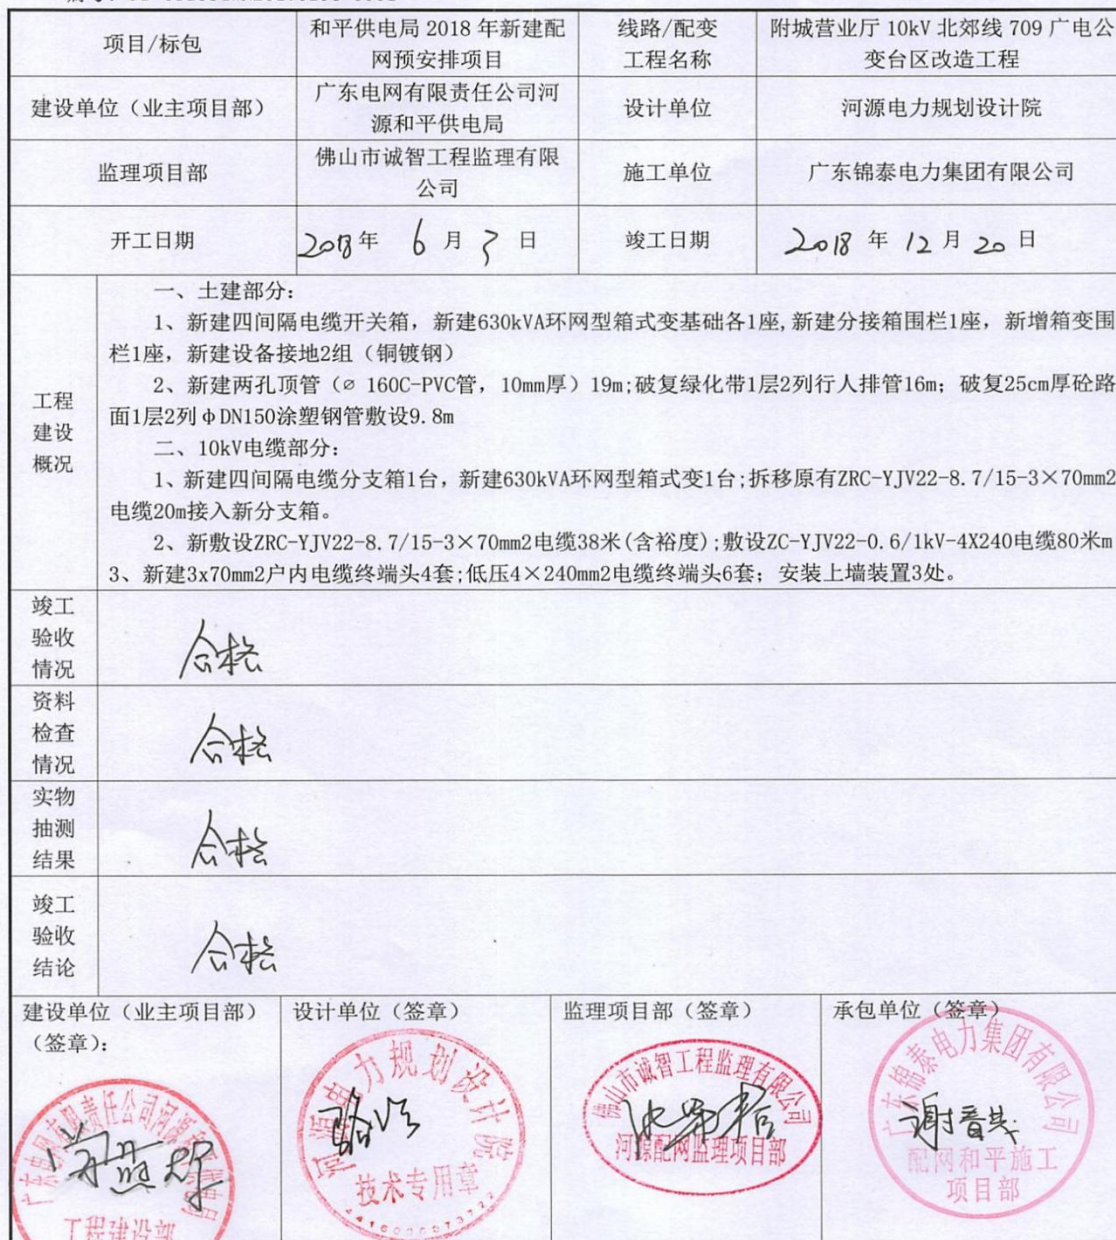 项目/标包
和平供电局 2018 年新建配
网预安排项目
线路/配变
工程名称
附城营业厅 10kV 北郊线 709 广电公
变台区改造工程
建设单位（业主项目部）
广东电网有限责任公司河
源和平供电局
设计单位
河源电力规划设计院
监理项目部
佛山市诚智工程监理有限
公司
施工单位
广东锦泰电力集团有限公司
开工日期
2018年 6 月 3 日
竣工日期
2018 年 12 月 20 日
工程
建设
概况
一、土建部分：
1、新建四间隔电缆开关箱，新建630kVA环网型箱式变基础各1座,新建分接箱围栏1座，新增箱变围
栏1座，新建设备接地2组（铜镀钢）
2、新建两孔顶管（∅ 160C-PVC管，10mm厚）19m;破复绿化带1层2列行人排管16m；破复25cm厚砼路
面1层2列φDN150涂塑钢管敷设9.8m
二、10kV电缆部分：
1、新建四间隔电缆分支箱1台，新建630kVA环网型箱式变1台;拆移原有ZRC-YJV22-8.7/15-3×70mm2
电缆20m接入新分支箱。
2、新敷设ZRC-YJV22-8.7/15-3×70mm2电缆38米(含裕度);敷设ZC-YJV22-0.6/1kV-4X240电缆80米m
3、新建3x70mm2户内电缆终端头4套;低压4×240mm2电缆终端头6套；安装上墙装置3处。
竣工
验收
情况
合格
资料
检查
情况
合格
实物
抽测
结果
合格
竣工
验收
结论
合格
建设单位（业主项目部）
（签章）：
设计单位（签章）
监理项目部（签章）
承包单位（签章）
工程建设部
河源电力规划设计院
技术专用章
佛山市诚智工程监理有限公司
河源配网监理项目部
广东锦泰电力集团有限公司
配网和平施工
项目部